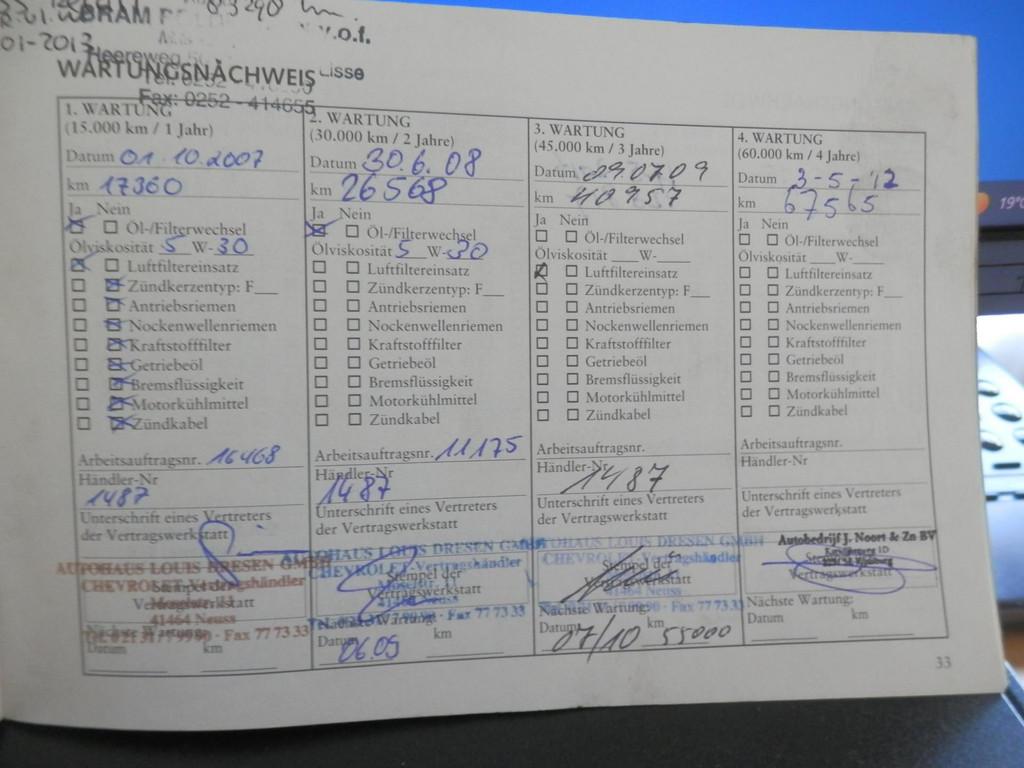 83290 km.
BRAM
v.o.f.
01-2013
Heereweg
Lisse
Tel. 0252
WARTUNGSNACHWEIS
Fax: 0252 - 414655
1. WARTUNG
(15.000 km / 1 Jahr)
Datum 01.10.2007
km 17360
Ja Nein
Öl-/Filterwechsel
Ölviskosität 5 W-30
Luftfiltereinsatz
Zündkerzentyp: F___
Antriebsriemen
Nockenwellenriemen
Kraftstofffilter
Getriebeöl
Bremsflüssigkeit
Motorkühlmittel
Zündkabel
Arbeitsauftragsnr. 16468
Händler-Nr
1487
Unterschrift eines Vertreters
der Vertragswerkstatt
AUTOHAUS LOUIS DRESEN GMBH
CHEVROLET-Vertragshändler
Vertragswerkstatt
41464 Neuss
Fax 77 73 33
Nächste Wartung:
Datum km
2. WARTUNG
(30.000 km / 2 Jahre)
Datum 30.6.08
km 26568
Ja Nein
Öl-/Filterwechsel
Ölviskosität 5 W-30
Luftfiltereinsatz
Zündkerzentyp: F___
Antriebsriemen
Nockenwellenriemen
Kraftstofffilter
Getriebeöl
Bremsflüssigkeit
Motorkühlmittel
Zündkabel
Arbeitsauftragsnr. 11175
Händler-Nr
1487
Unterschrift eines Vertreters
der Vertragswerkstatt
AUTOHAUS LOUIS DRESEN GMBH
CHEVROLET-Vertragshändler
Stempel der
Vertragswerkstatt
41464 Neuss
Fax 77 73 33
Nächste Wartung:
Datum km
06.09
3. WARTUNG
(45.000 km / 3 Jahre)
Datum 090709
km 40957
Ja Nein
Öl-/Filterwechsel
Ölviskosität ___W-____
Luftfiltereinsatz
Zündkerzentyp: F___
Antriebsriemen
Nockenwellenriemen
Kraftstofffilter
Getriebeöl
Bremsflüssigkeit
Motorkühlmittel
Zündkabel
Arbeitsauftragsnr.
Händler-Nr
1487
Unterschrift eines Vertreters
der Vertragswerkstatt
AUTOHAUS LOUIS DRESEN GMBH
CHEVROLET-Vertragshändler
Stempel der
Vertragswerkstatt
41464 Neuss
Fax 77 73 33
Nächste Wartung:
Datum km
07/10 55000
4. WARTUNG
(60.000 km / 4 Jahre)
Datum 3-5-'12
km 67565
Ja Nein
Öl-/Filterwechsel
Ölviskosität ___W-____
Luftfiltereinsatz
Zündkerzentyp: F___
Antriebsriemen
Nockenwellenriemen
Kraftstofffilter
Getriebeöl
Bremsflüssigkeit
Motorkühlmittel
Zündkabel
Arbeitsauftragsnr.
Händler-Nr
Unterschrift eines Vertreters
der Vertragswerkstatt
Autobedrijf J. Noort & Zn BV
Vertragswerkstatt
Nächste Wartung:
Datum km
33
19°